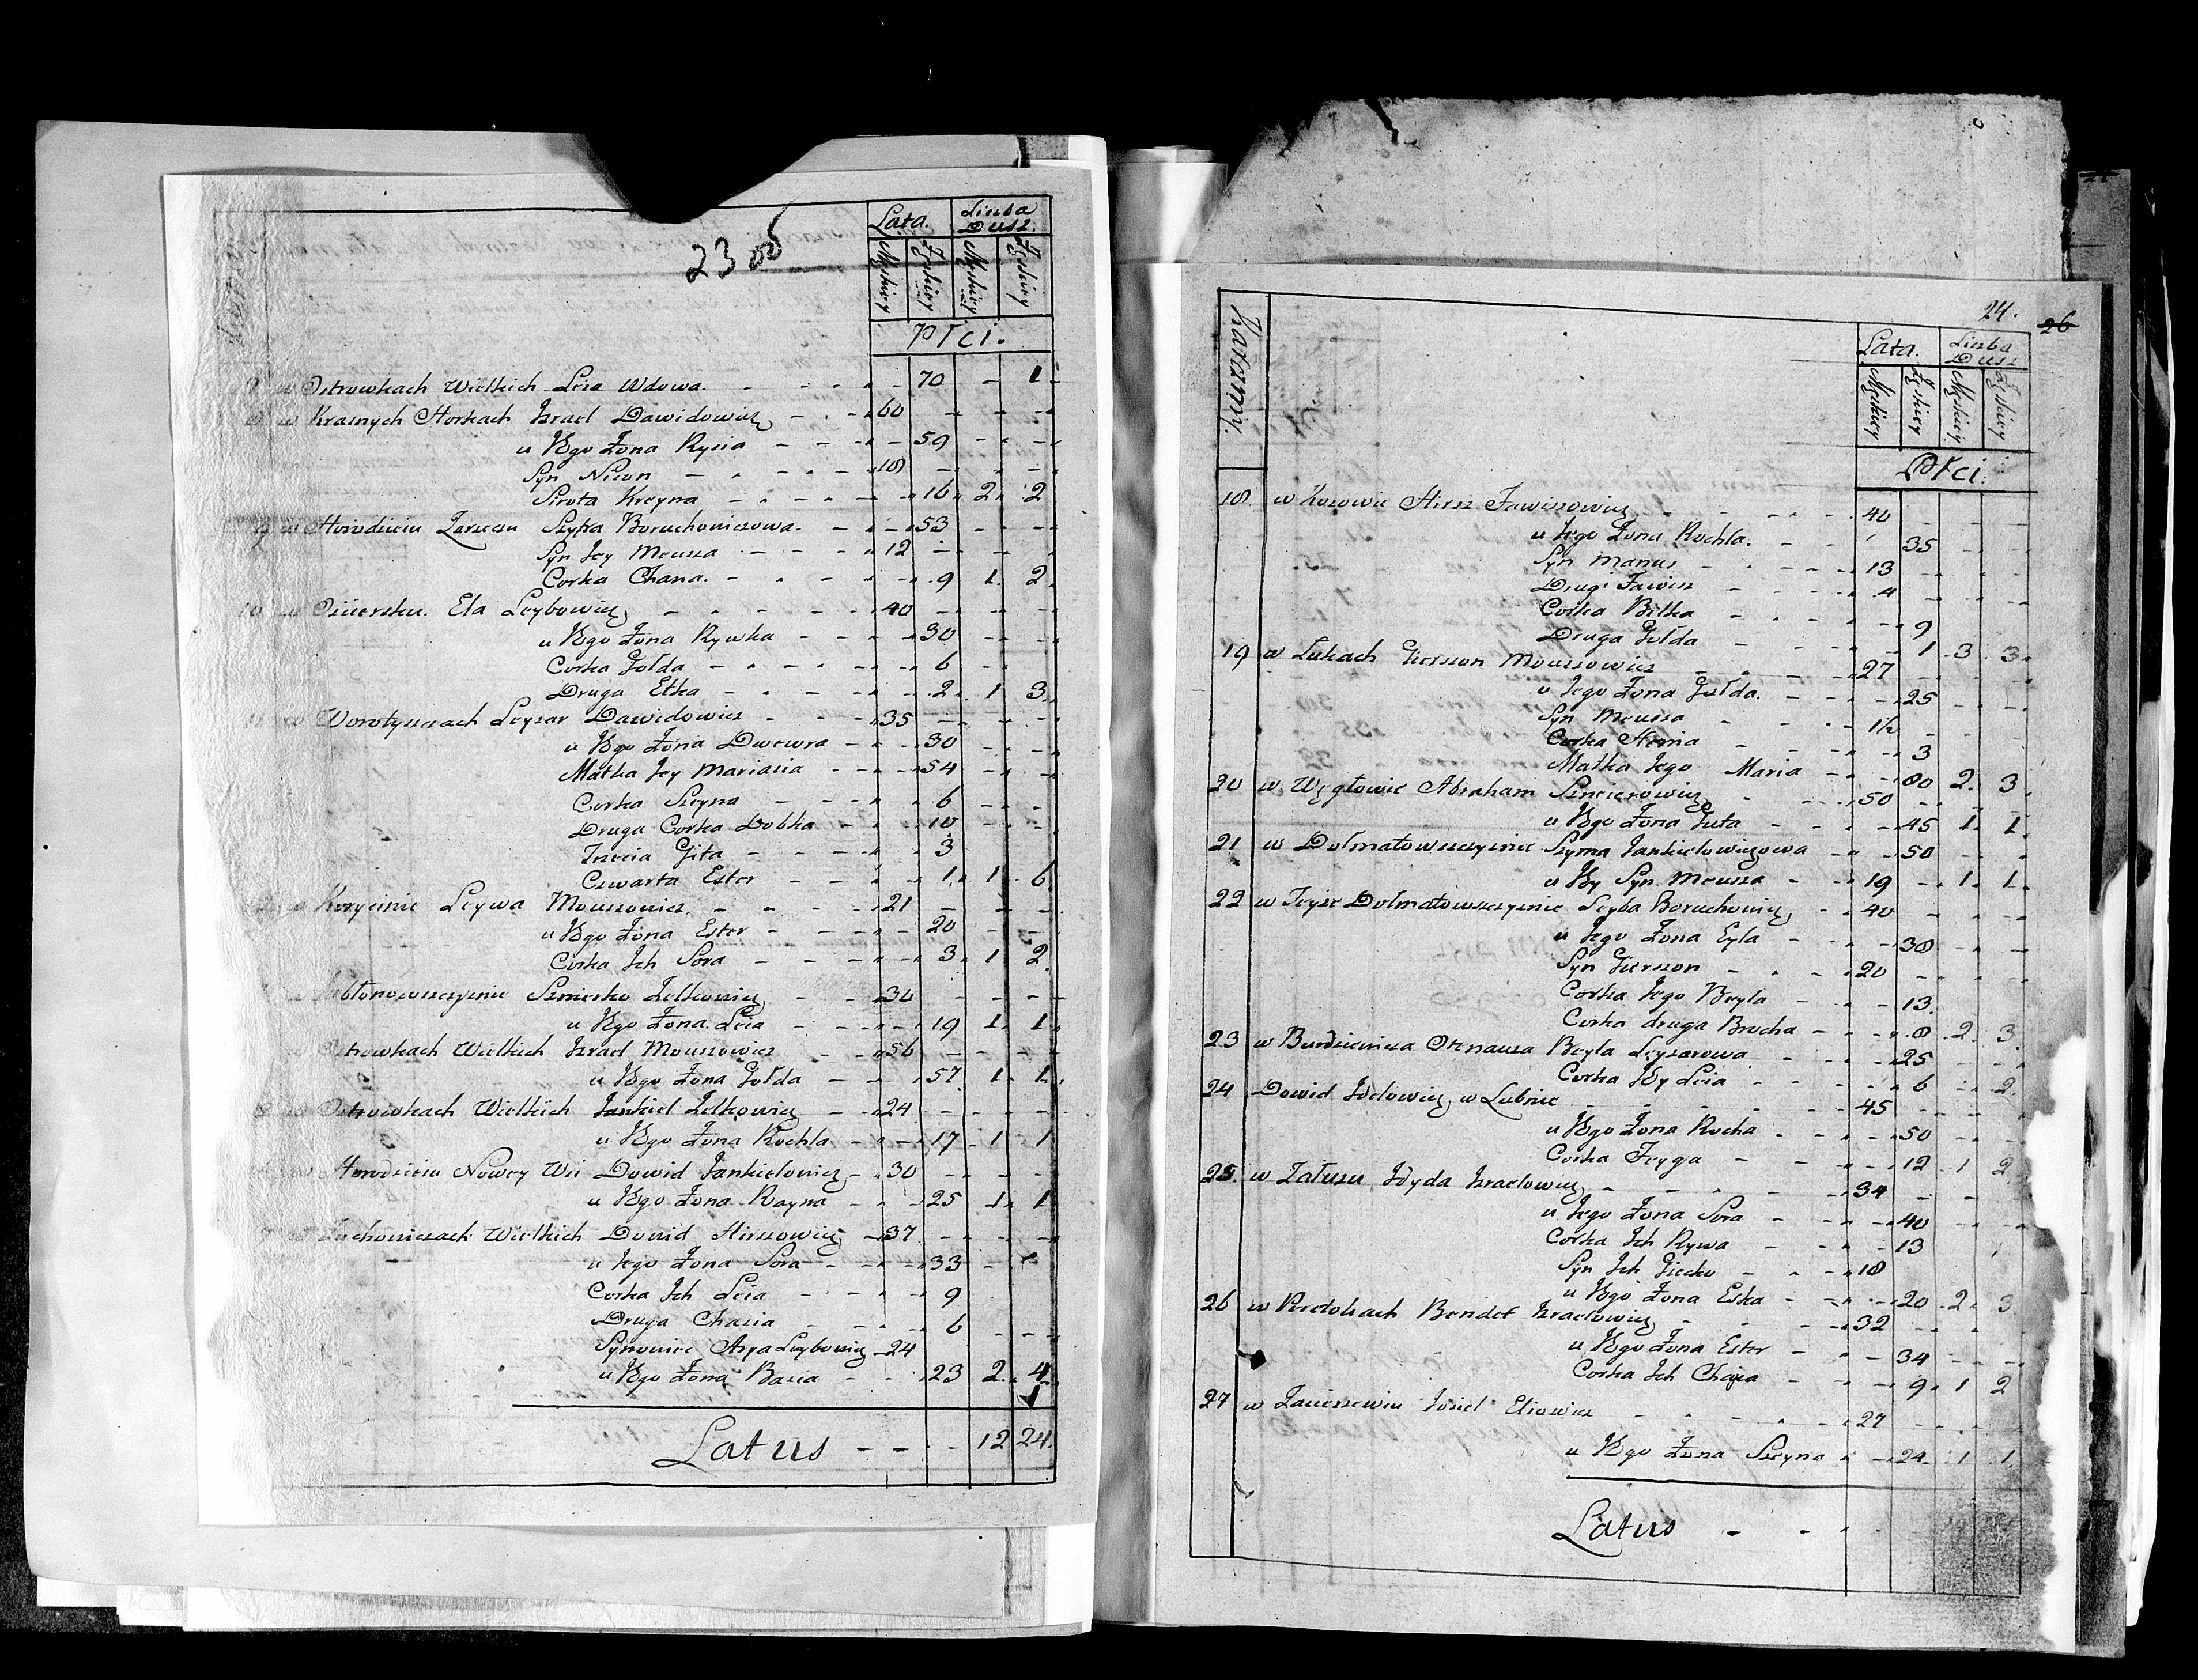 23 об
Lata. Liczba Dusz.
Męskiey Żęskiey Męskiey Żęskiey
Płci.
w Ostrowkach Wielkich Leia Wdowa. 70 1
w Krasnych Horkach Izrael Dawidowicz 60
u Iego Żona Rysia 59
Syn Nison 18
Sirota Kreyna 16 2 2
9 w Horodzieiu Zarzeczu Szyfra Boruchowiczowa. 53
Syn Iey Mousza 12
Corka Chana. 9 1 2
10 w Osiecku Ela Leybowicz 40
u Iego Żona Rywka 30
Corka Gołda 6
Druga Etka 2 1 3
w Worotyszczach Leyzar Dawidowicz 35
u Iego Żona Dwowra 30
Matka Iey Mariasia 54
Corka Szeyna 6
Druga Corka Dobka 10
Trzecia Gita 3
Czwarta Ester 1 1 6
w Korycinie Leywa Mouszowicz 21
u Iego Żona Ester 20
Corka Ich Sora 3 1 2
Jabłonowszczyznie Szmerko Zelkowicz 30
u Iego Żona Leia 19 1 1
Ostrowkach Wielkich Izrael Mouszowicz 56
u Iego Żona Gołda 57 1 1
w Ostrowkach Wielkich Jankiel Zelkowicz 24
u Iego Żona Rochla 17 1 1
w Horodzieiu Nowey Wsi Dowid Jankielowicz 30
u Iego Żona Rayna 25 1 1
Wielkich Dowid Hirszowicz 37
u Iego Żona Sora 33
Corka Ich Leia 9
Druga Chasia 6
Synowiec Arya Leybowicz 24
u Iego Żona Basia 23 2 4
1
Latus 12 24
24.
26
Numery
Lata. Liczba Dusz
Męskiey Żęskiey Męskiey Żęskiey
Płci.
18 w Kozowie Hirsz Fawiszowicz 40
u Iego Żona Rochla. 35
Syn Manus 13
Drugi Fawisz 4
Corka Bilka 9
Druga Gołda 1 3 3
19 w Lukach Gierszon Mouszowicz 27
u Iego Żona Gołda. 25
Syn Mousza 1½
Corka Henia 3
Matka Iego Maria 80 2 3
20 w Węgłowie Abraham Szmeierowicz 50
u Iego Żona Guta 45 1 1
21 w Dołmatowszczyznie Szyma Jankielowiczowa 50
u Iey Syn Mousza 19 1 1
22 w Teyże Dołmatowszczyznie Leyba Boruchowicz 40
u Iego Żona Eyla 38
Syn Gierszon 20
Corka Iego Beyla 13
Corka druga Brocha 8 2 3
23 w Beyla Leyzarowa 25
Corka Iey Leia 6 2
24 Dowid Iudowicz w Lubnie 45
u Iego Żona Rocha 50
Corka Feyga 12 1 2
25 w Załuzu Izraelowicz 34
u Iego Żona Sora 40
Corka Ich Rywa 13
Syn Ich Hecko 18
u Iego Żona Eska 20 2 3
26 w Peretokach Bendet Izraelowicz 32
u Iego Żona Ester 34
Corka Ich Chasia 9 1 2
27 w Zauszewiu Iosiel Eliowicz 27
u Iego Żona Szeyna 24 1 1
Latus